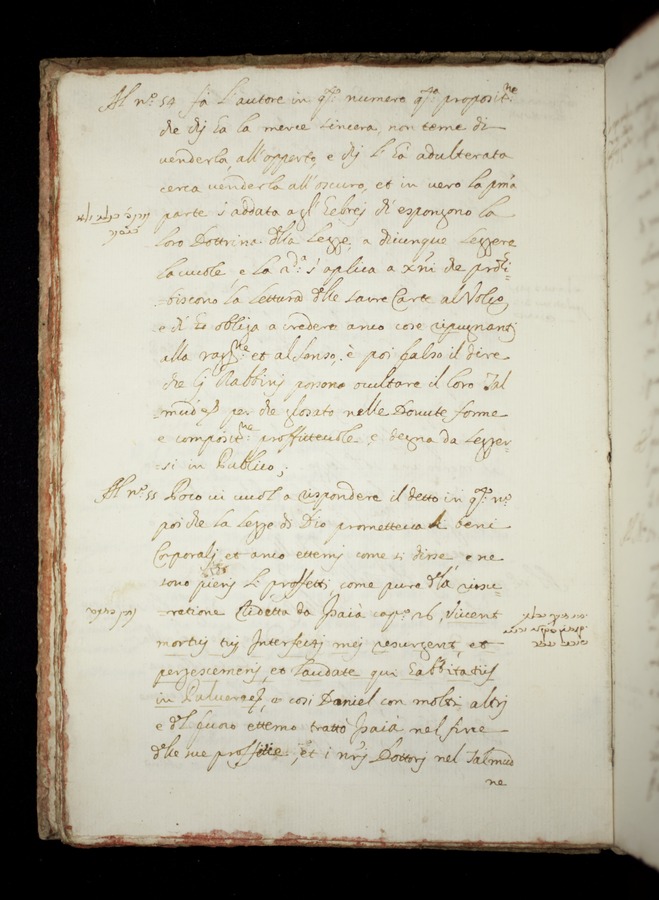 Al n.º 54 fà l'autore in q.º numero q.ª proposit.ne
che chi ha la merce sincera, non teme di
venderla, all'apperto, e chi l'hà adulterata
cerca venderla all'oscuro, et in vero la p̃ma
parte s'addata agl'Hebrej ch'espongono la
loro Dottrina della Legge, a chiunque Leggere
la vuole e la 2.da s'aplica a xr̃ni che prohi-
-biscono la Lettura delle sacre Carte al Volgo
e ch'hò obliga a credere anco cose ripugnanti
alla rag.ne et al senso, è poi falso il dire
che Gj Rabbinj possono ocultare il loro Tal
mud per che glosato nelle Dovute forme
e composit.ne proffittevole e degna da Legger-
-si in Publico;
Al n.º 55 Poco vi vuol a rispondere il detto in q.º n.º
poi che la Legge di Dio prometteva beni
Corporalj et anco etternj come si disse e ne
sono pienj li proffetti, come pure della resu-
-ratione Predetta da Isaia cap.º 26, vivent
mortuj tuj Interfectj mej resurgent, et
expergescemenj et laudate qui habitatis
in Pulvere, e così Daniel con molti altrj
e del fuoco etterno trattò Isaia nel fine
delle sue proffetie, et i nr̃j Dottorj nel Talmud
ne